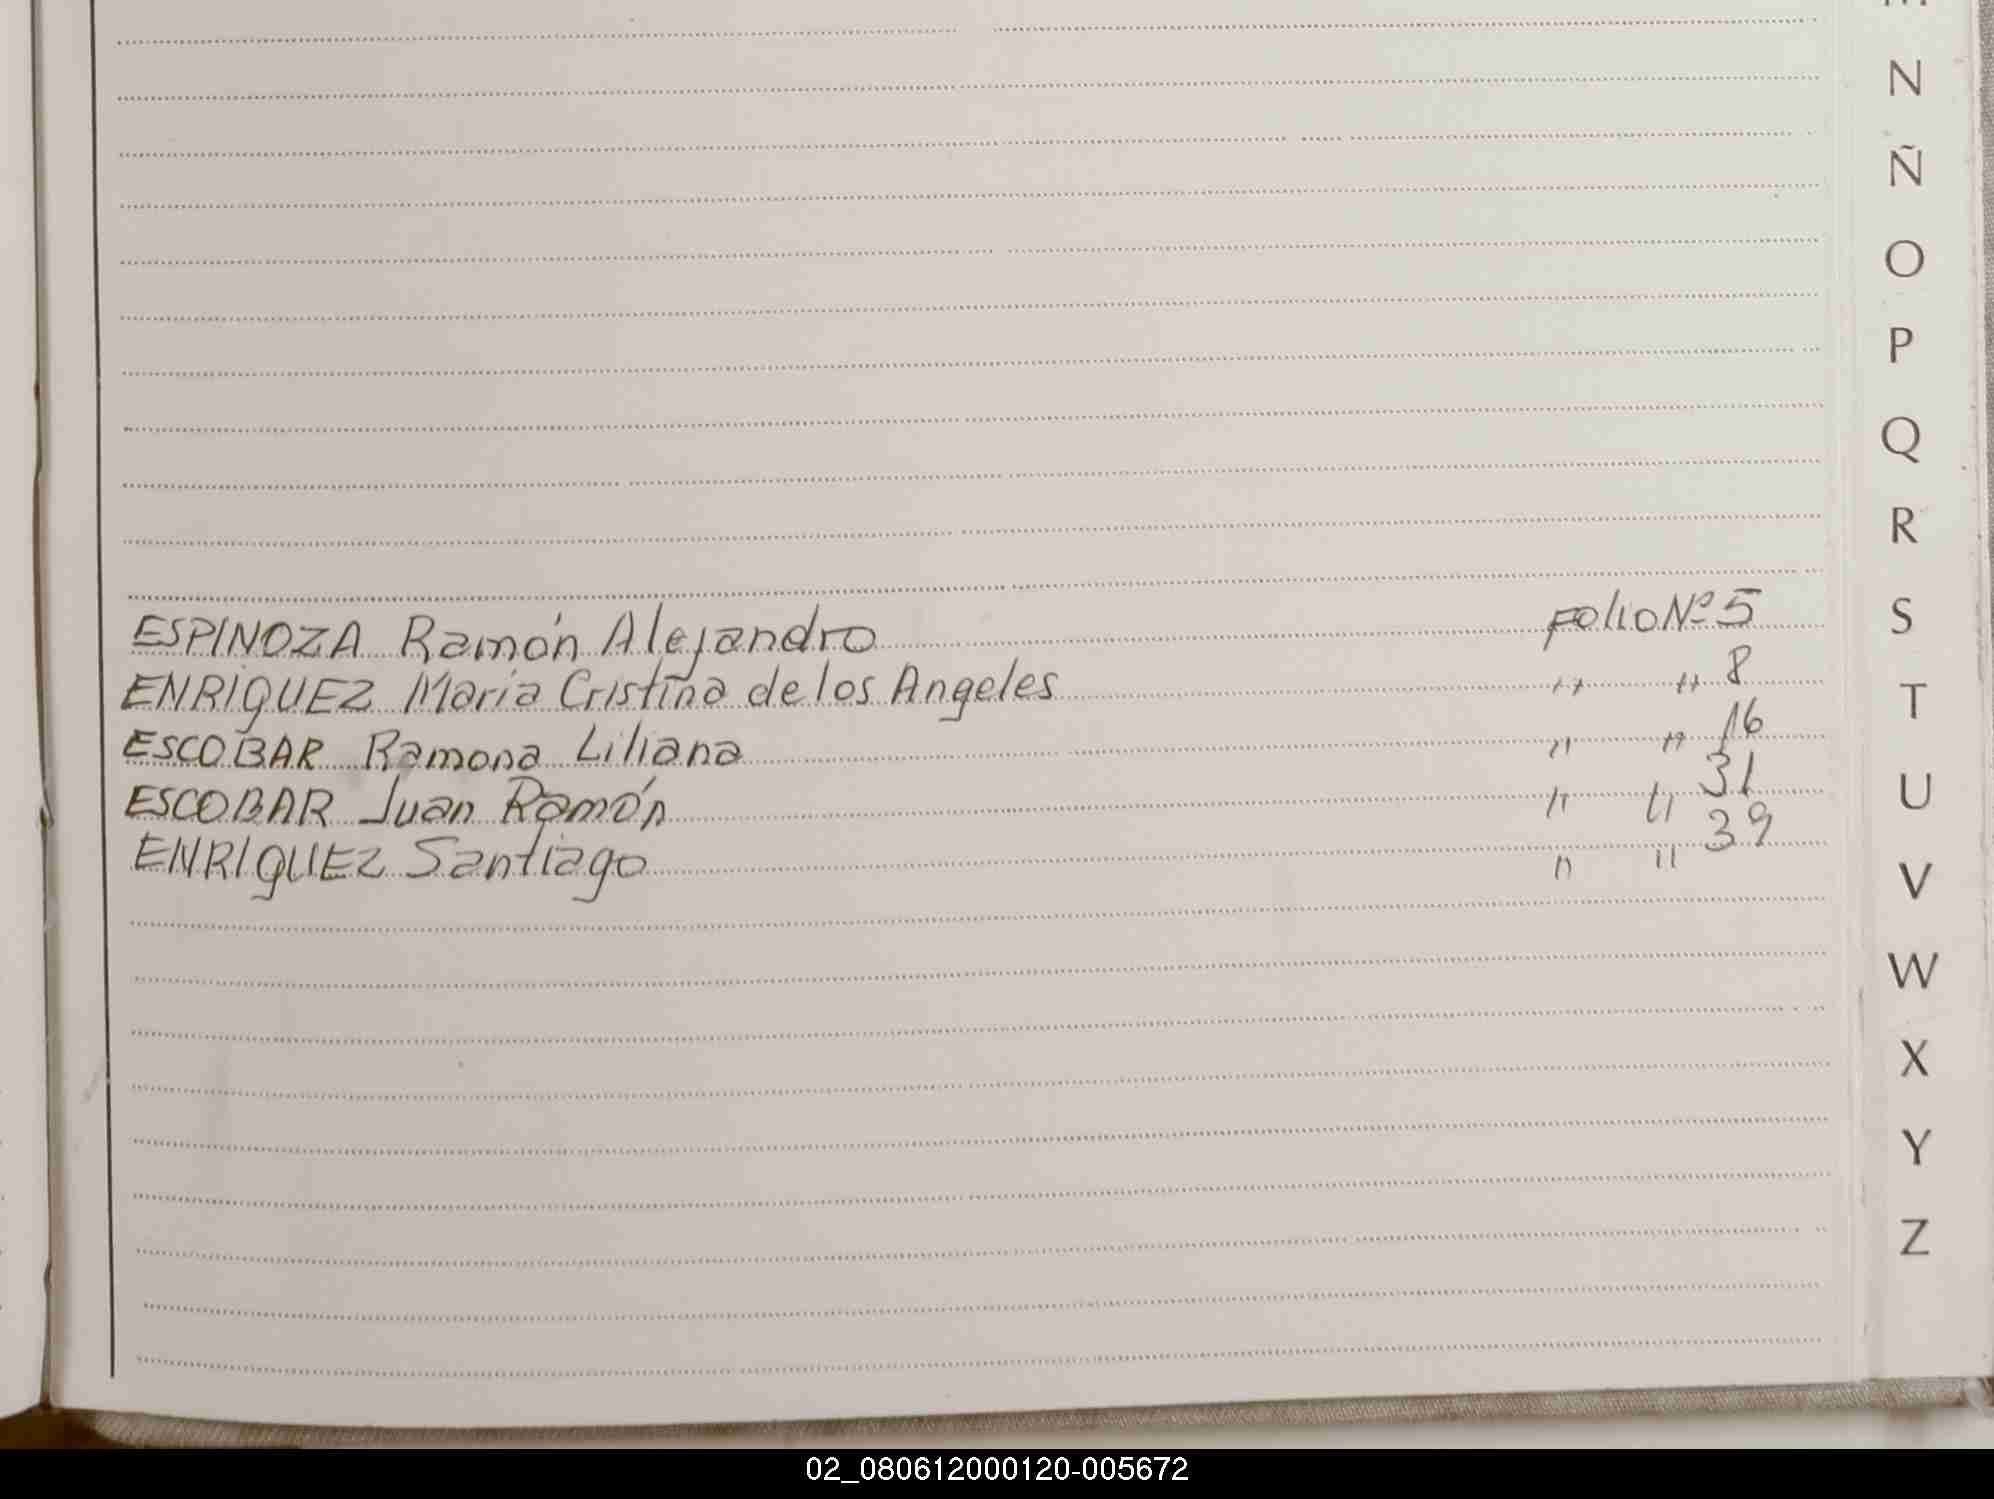 ESPINOZA Ramón Alejandro FOLIO Nº 5
ENRIQUEZ Maria Cristina de los Angeles " " 8
ESCOBAR Ramona Liliana " " 16
ESCOBAR Juan Ramón " " 31
ENRIQUEZ Santiago " " 39
N
Ñ
O
P
Q
R
S
T
U
V
W
X
Y
Z
02_080612000120-005672